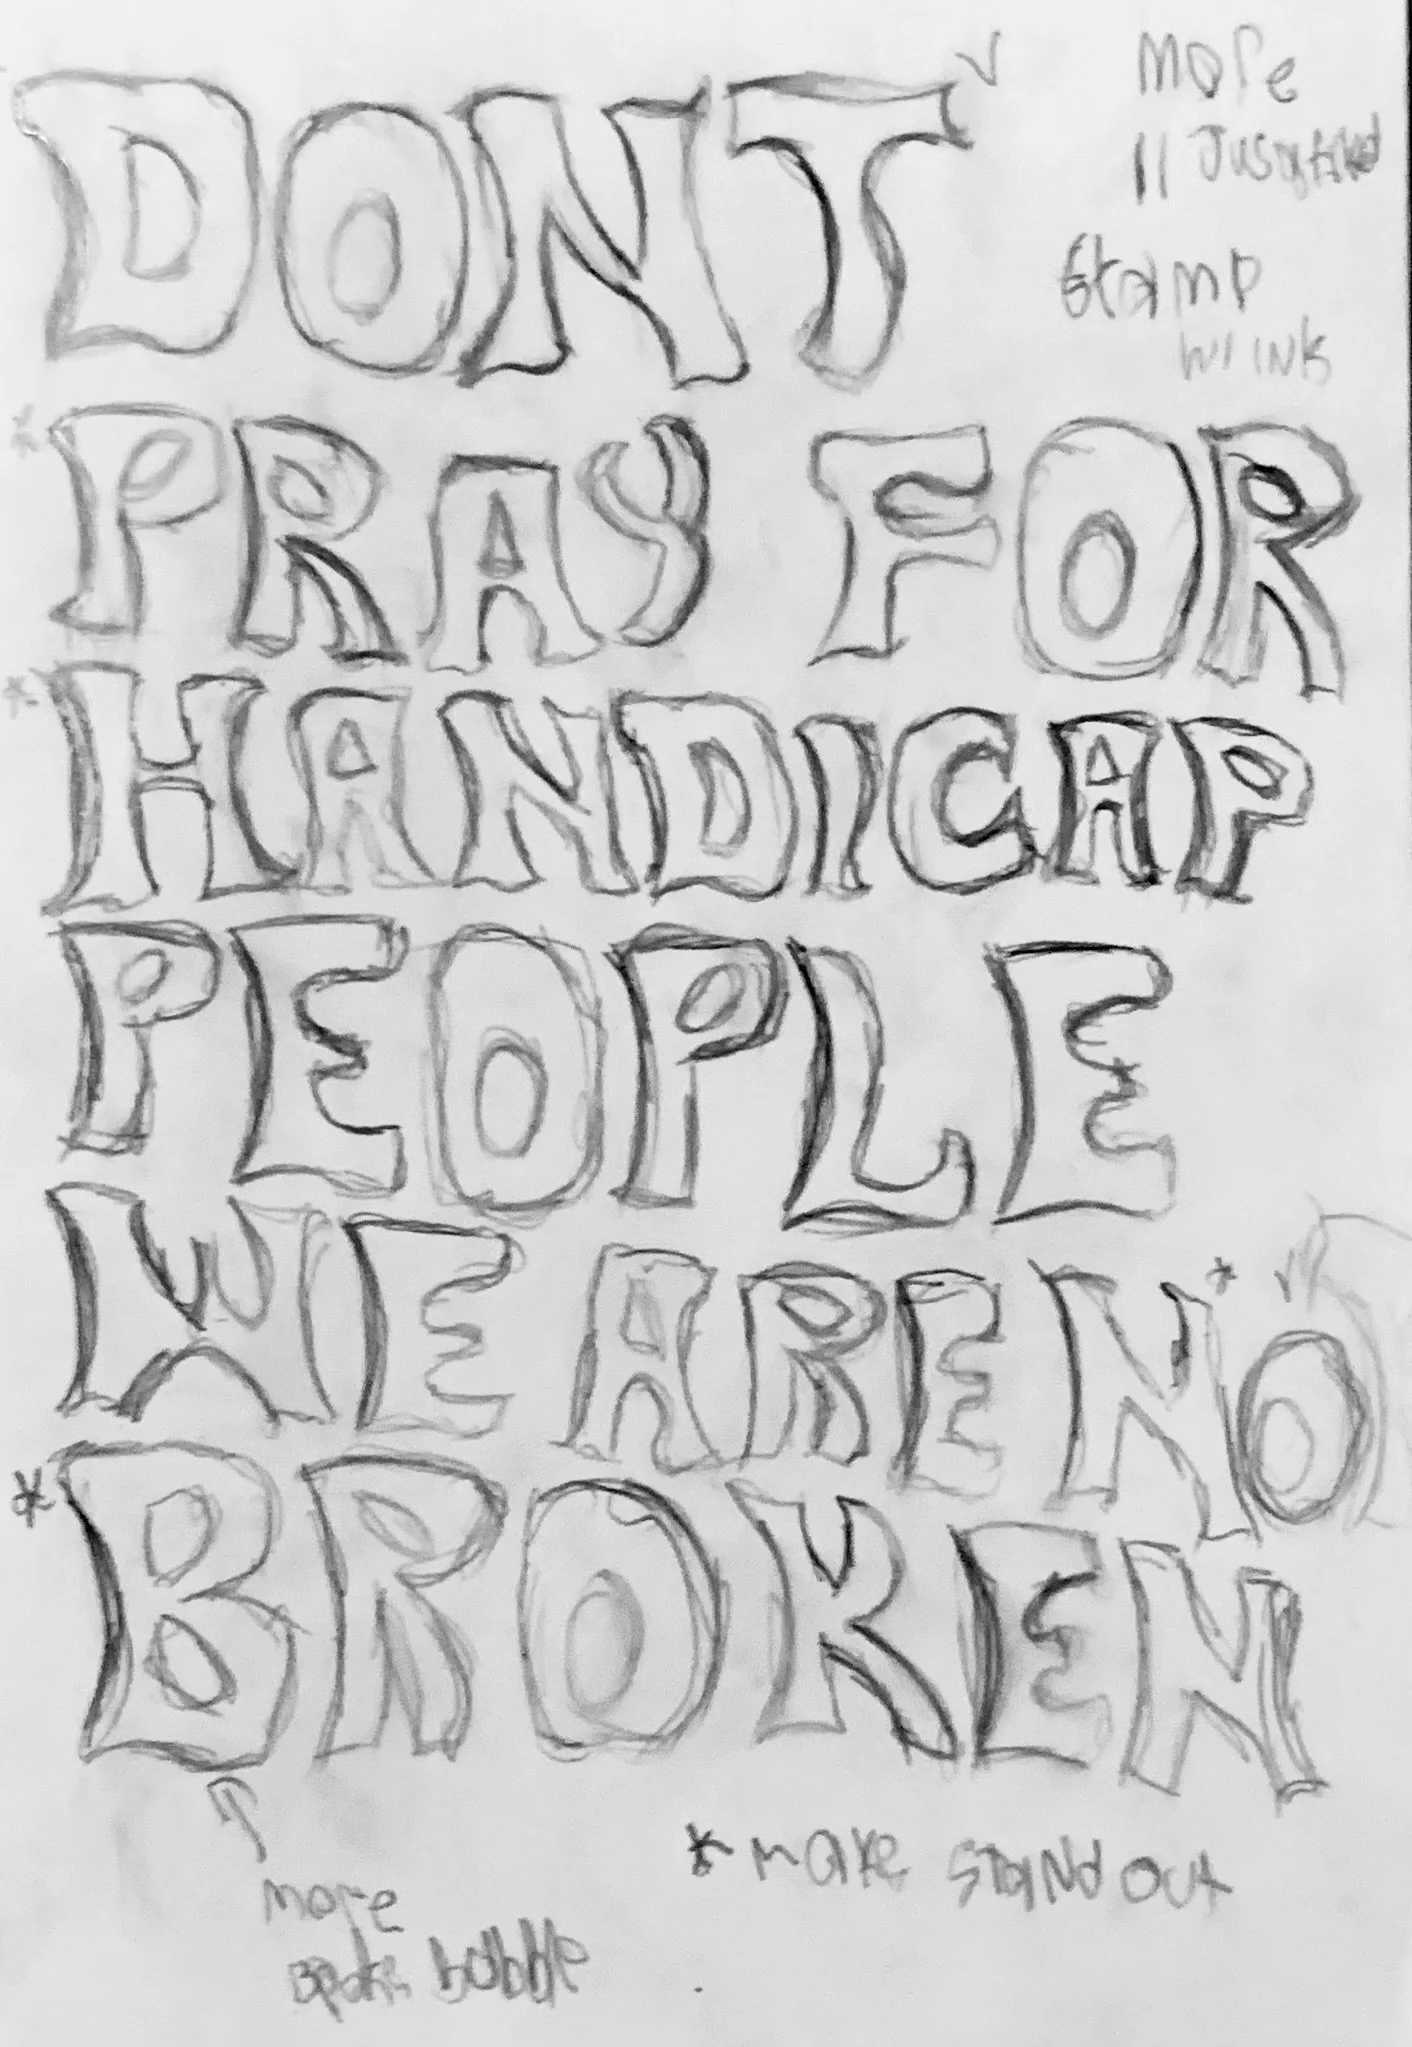 DONT
more
Justified
stamp
w/ INK
* PRAY FOR
* HANDICAP
PEOPLE
WE ARE NO
* BROKEN
more
bubble
* make stand out